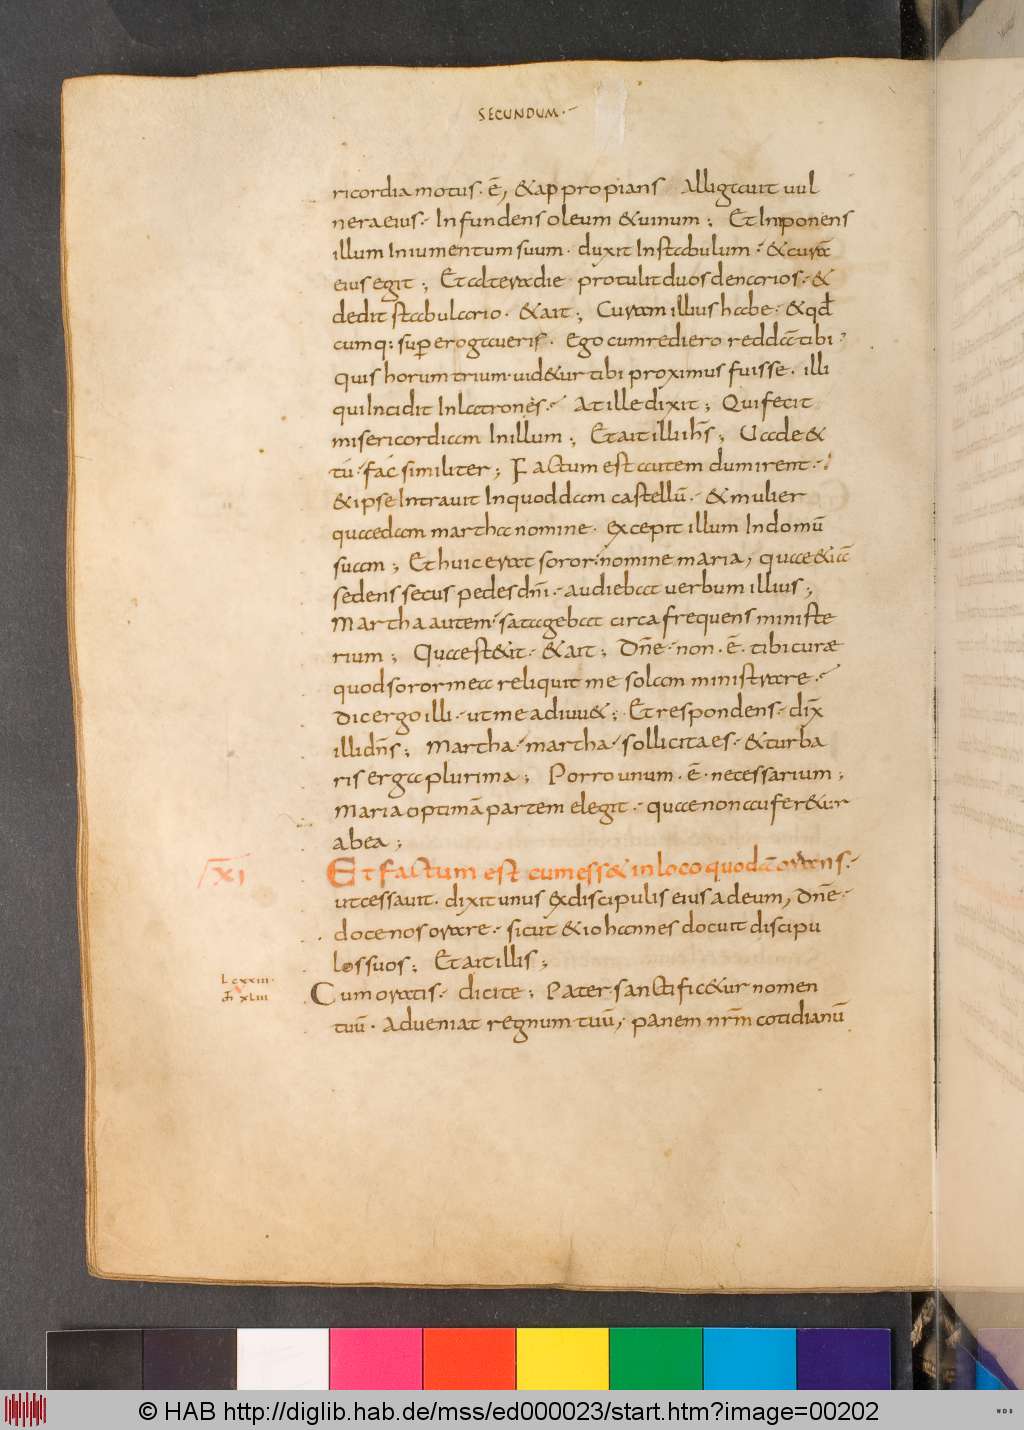 SECUNDUM
ricordia motus · ē, & appropians Alligauit uul
nera eius · Infundens oleum & uinum ; Et Inponens
illum In iumentum suum · duxit In stabulum · & curā
eius egit ; Et altera die protulit duos denarios · &
dedit stabulario · & ait ; Curam illius habe · & qđ
cumq: sup erogaueris · Ego cum rediero reddā tibi ·
quis horum trium · uid&ur tibi proximus fuisse · illi
qui Incidit In latrones · At ille dixit ; Qui fecit
misericordiam In illum ; Et ait illi ih̄s ; Uade &
tū · fac similiter ; Factum est autem dum irent ·
& ipse Intrauit In quoddam castellū · & mulier
quaedam martha nomine · excepit illum In domū
suam ; Et huic erat soror · nomine maria, quae & iā
sedens secus pedes dn̄i · audiebat uerbum illius ;
Martha autem · satagebat circa frequens ministe
rium ; Quae st&it · & ait ; Dn̄e · non · ē · tibi curæ
quod soror mea reliquit me solam ministrare ·
Dic ergo illi · ut me adiuu& ; Et respondens · dix̄
illi dn̄s ; Martha · martha · sollicita es · & turba
ris erga plurima ; Porro unum · ē · necessarium ;
Maria optimā partem elegit · quae non aufer&ur
ab ea ;
XI Et factum est cum ess& in loco quodā orans ·
ut cessauit · dixit unus ex discipulis eius ad eum, Dn̄e ·
doce nos orare · sicut & iohannes docuit discipu
los suos ; Et ait illis ;
Cum oratis · dicite ; Pater · sanctific&ur nomen
tuū · Adueniat regnum tuū, panem nr̄m cotidianū
© HAB http://diglib.hab.de/mss/ed000023/start.htm?image=00202